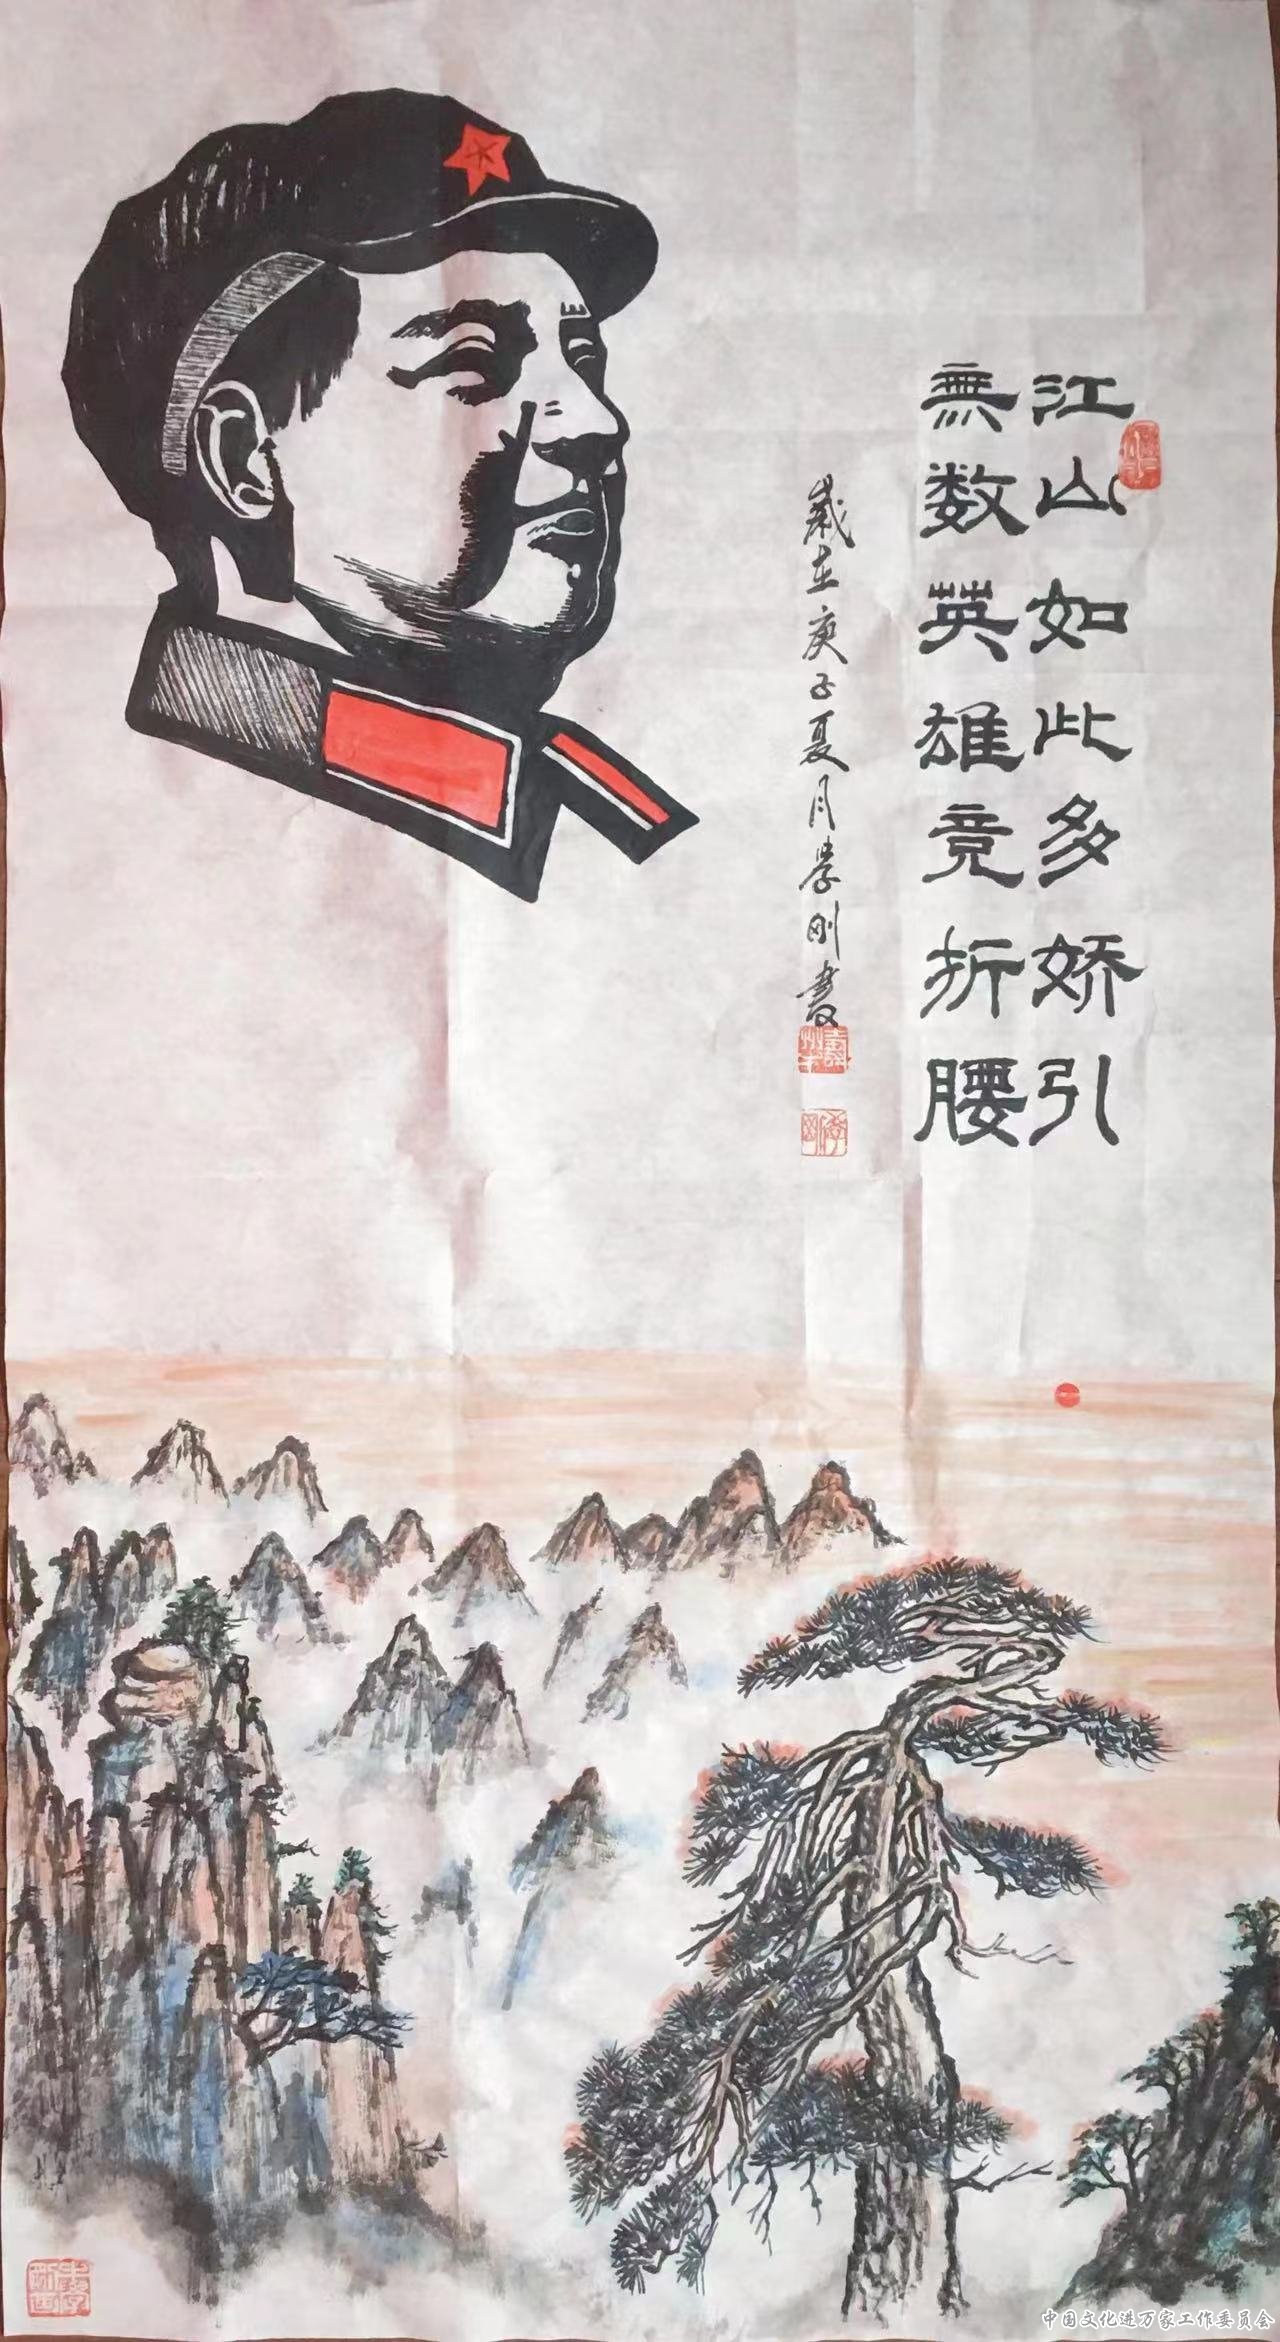 江山如此多娇引
無数英雄竞折腰
歲在庚子夏月孝刚書
中国文化进万家工作委员会